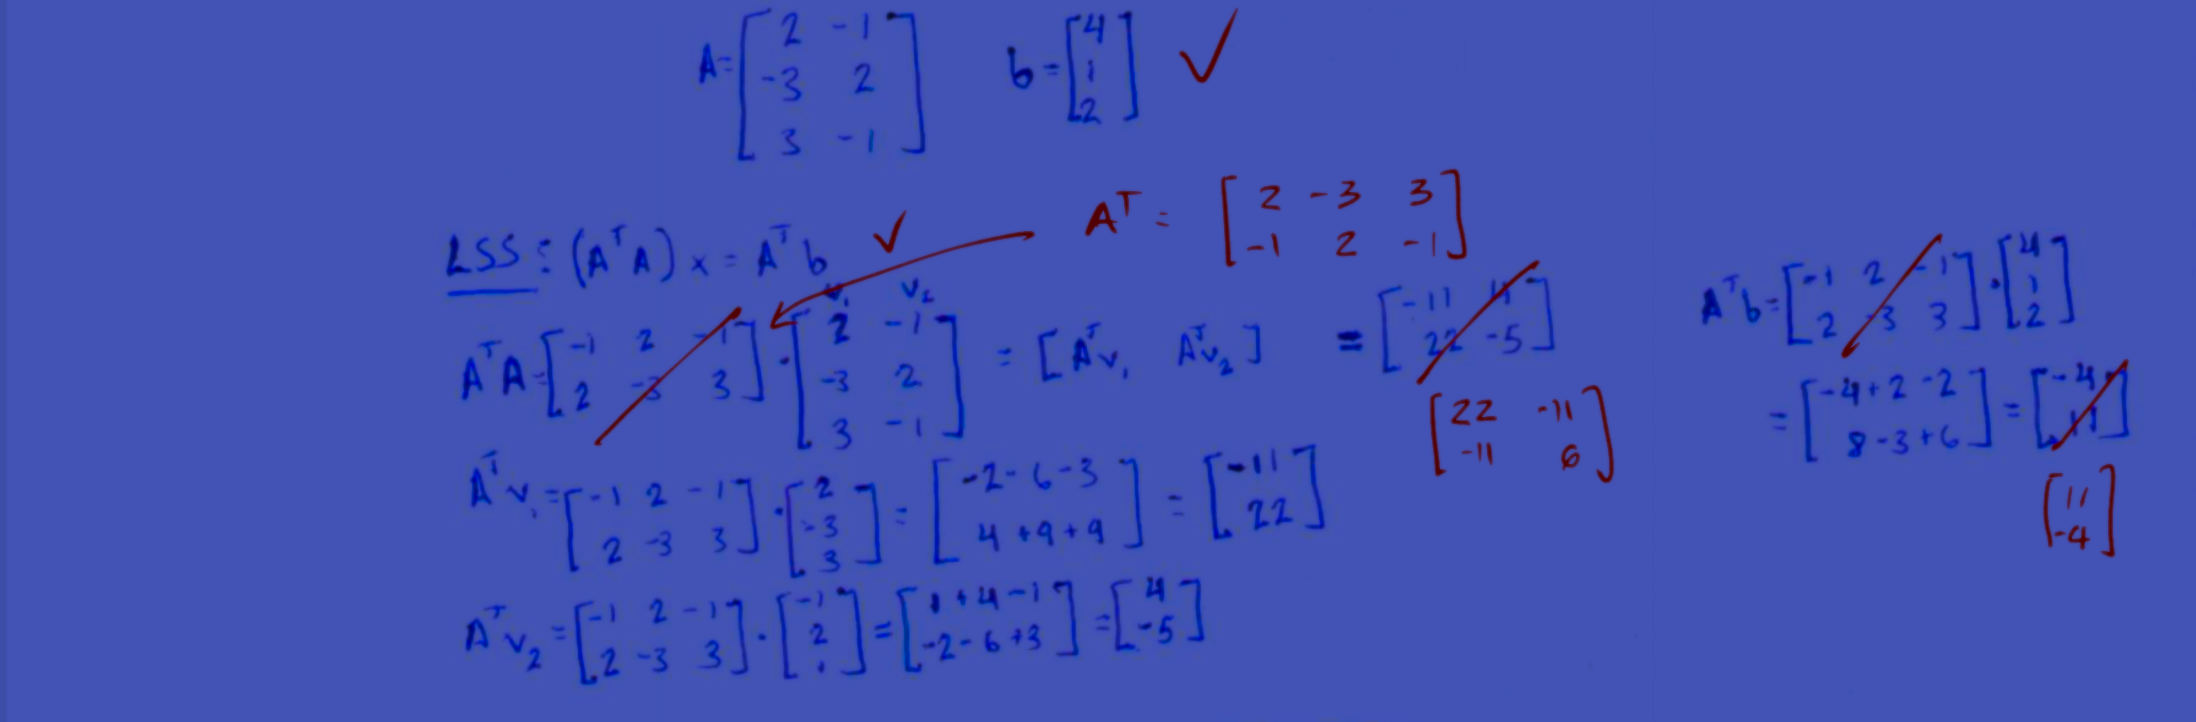 A = [ 2 -1 ; -3 2 ; 3 -1 ] b = [ 4 ; 1 ; 2 ] ✓
A^T = [ 2 -3 3 ; -1 2 -1 ]
LSS : (A^T A) x = A^T b ✓
v₁ v₂
A^T A = [ -1 2 -1 ; 2 -3 3 ] · [ 2 -1 ; -3 2 ; 3 -1 ] = [ A^T v₁ A^T v₂ ] = [ -11 4 ; 22 -5 ]
[ 22 -11 ; -11 6 ]
A^T v₁ = [ -1 2 -1 ; 2 -3 3 ] · [ 2 ; -3 ; 3 ] = [ -2 - 6 - 3 ; 4 + 9 + 9 ] = [ -11 ; 22 ]
A^T v₂ = [ -1 2 -1 ; 2 -3 3 ] · [ -1 ; 2 ; ] = [ 1 + 4 - 1 ; -2 - 6 + 3 ] = [ 4 ; -5 ]
A^T b = [ -1 2 -1 ; 2 -3 3 ] · [ 4 ; 1 ; 2 ]
= [ -4 + 2 - 2 ; 8 - 3 + 6 ] = [ -4 ; 11 ]
[ 11 ; -4 ]